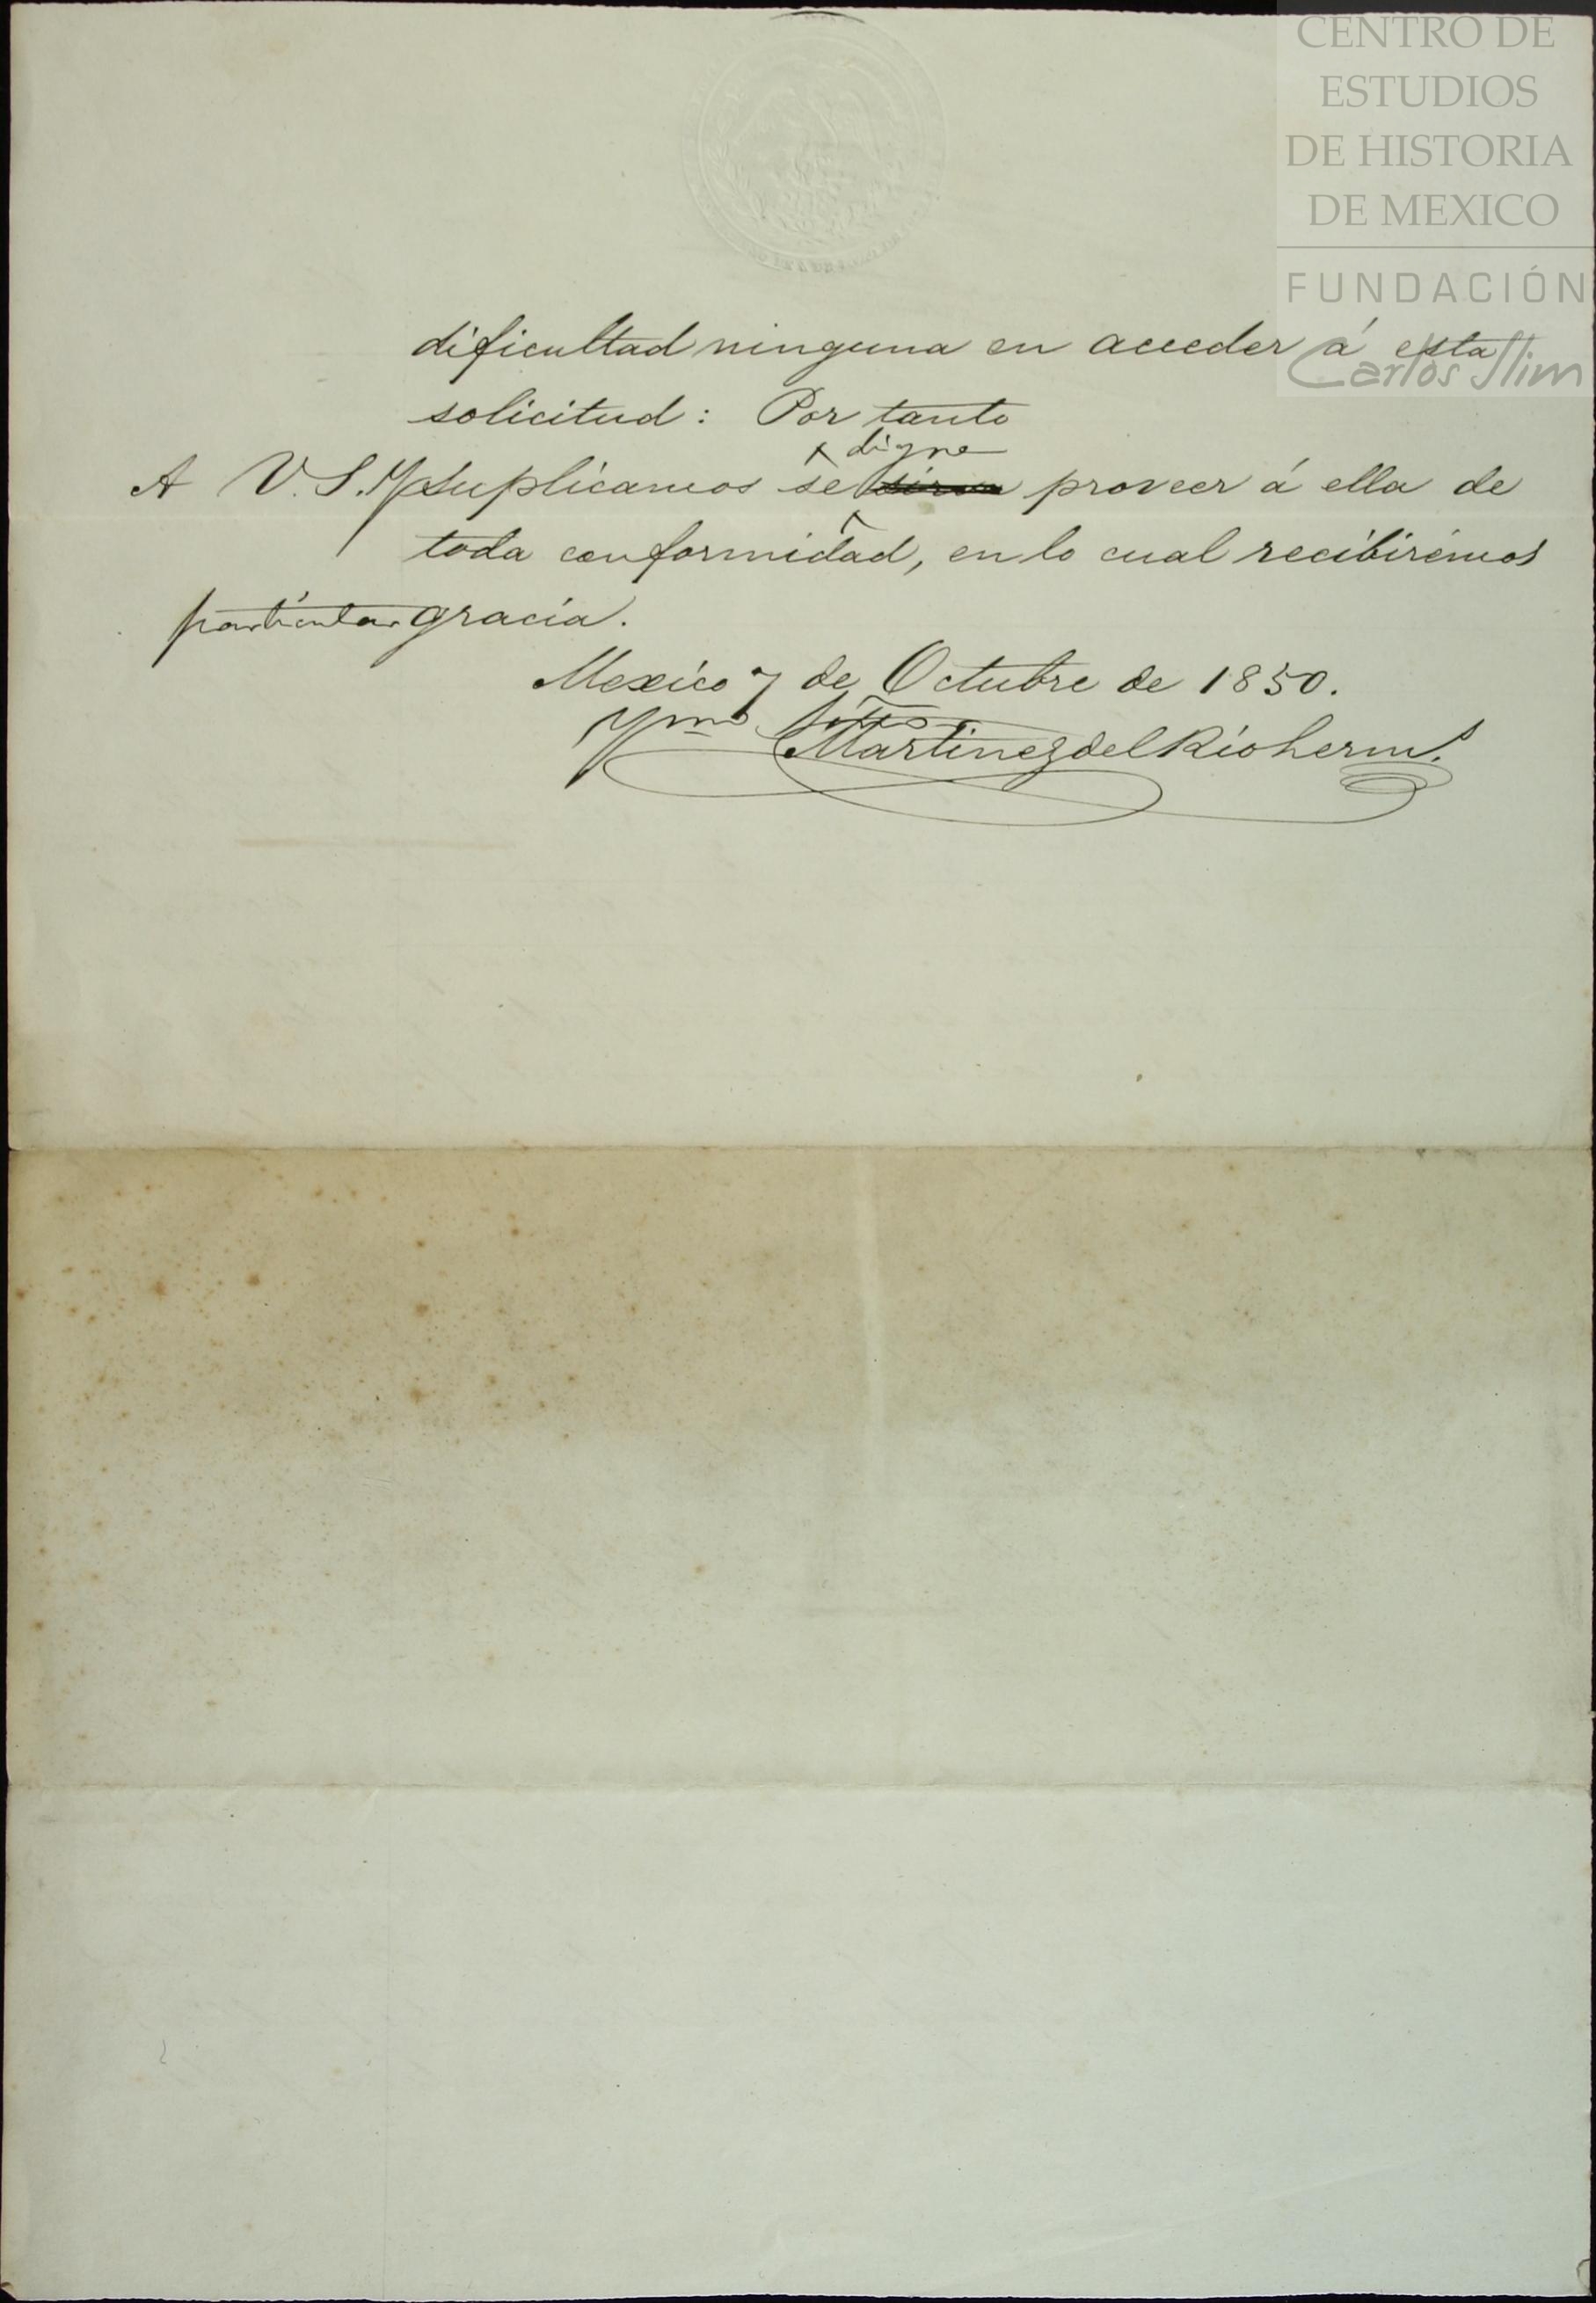 CENTRO DE
ESTUDIOS
DE HISTORIA
DE MEXICO
FUNDACIÓN
Carlos Slim
dificultad ninguna en acceder á esta
solicitud: Por tanto
digne
A V.S.Y. suplicamos se sirva proveer á ella de
toda conformidad, en lo cual recibirémos
particular gracia.
Mexico 7 de Octubre de 1850.
Ymo
Martinez del Rio herms.